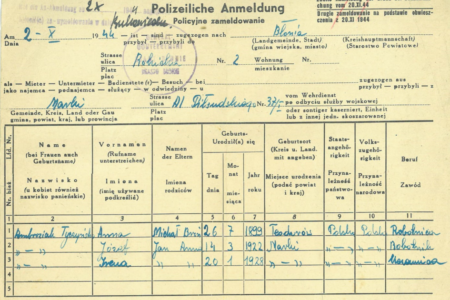 2x
Polizeiliche Anmeldung
Policyjne zameldowanie
chung vom 20.11.44
Drugie zameldowanie na podstawie obwieszcze-
z 20.XI.44
Am
Dnia 2-X 1944 ist — sind — zugezogen nach
przybył — przybyli do Błonia
(Landgemeinde, Stadt)
(gmina wiejska, miasto)
(Kreishauptmannschaft)
(Starostwo Powiatowe)
Strasse
ulica
Platz
plac
Nr. 2 Wohnung
mieszkanie Nr.
als — Mieter — Untermieter — Bedienstete(r) — Besuch — bei
jako najemca — podnajemca — służący — w odwiedziny — u
zugezogen aus
przybył — przybyli — z
Marki
Strasse
ulica
Platz
plac
Al Piłsudskiego Nr.
vom Wehrdienst
po odbyciu służby wojskowej
Gemeinde, Kreis, Land oder Gau
gmina, powiat, kraj lub prowincja
oder antigez kaserniert, Einheit
lub z innej jedn. skoszarowanej
Lfd. Nr.
Nr. bież
Name
(bei Frauen auch
Geburtsname)
Nazwisko
(u kobiet również
nazwisko panieńskie)
Vornamen
(Rufname
unterstreichen)
Imiona
(imię używane
podkreślić)
Namen
der Eltern
Imiona
rodziców
Geburts-
Urodzeni(a) się
Tag
dnia
Mo-
nat
miesiąca
Jahr
roku
Geburtsort
(Kreis u. Land
mit angeben)
Miejsce urodzenia
(podać powiat
i kraj)
Staats-
angehö-
rigkeit
Przyna-
leżność
państwowa
Volks-
zugehö-
rigkeit
Przyna-
leżność
narodowa
Beruf
Zawód
1 2 3 4 5 6 7 8 9 10 11
1 Ambroziak Anna 26 7 1899 Teodorów Polska Polska Robotnica
2 —„— Józef Jan Anna 14 3 1922 Marki —„— —„— Robotnik
3 —„— Irena —„— 20 1 1928 —„— —„— —„—
4
5